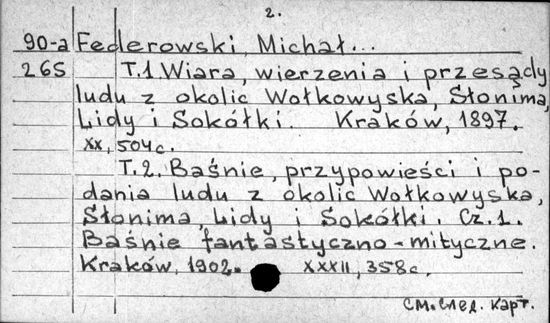 2.
90-a Federowski, Michał...
265 T.1 Wiara, wierzenia i przesądy
ludu z okolic Wołkowyska, Słonima,
Lidy i Sokółki. Kraków, 1897.
XX, 504 c.
T. 2. Baśnie, przypowieści i po-
dania ludu z okolic Wołkowyska,
Słonima, Lidy i Sokółki. Cz. 1.
Baśnie fantastyczno-mityczne.
Kraków, 1902. XXXII, 358 c.
См. след. карт.